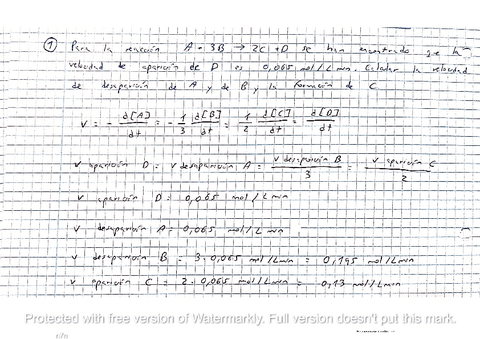 ① Para la reacción A + 3B → 2C + D se han encontrado que la
velocidad de aparición de D es 0,065 mol/L min. Calcular la velocidad
de desaparición de A y de B y la formación de C
v = - d[A]/dt = - 1/3 d[B]/dt = 1/2 d[C]/dt = d[D]/dt
v aparición D = v desaparición A = v desaparición B/3 = v aparición C/2
v aparición D = 0,065 mol/L min
v desaparición A = 0,065 mol/L min
v desaparición B = 3·0,065 mol/L min = 0,195 mol/L min
v aparición C = 2·0,065 mol/L min = 0,13 mol/L min
Protected with free version of Watermarkly. Full version doesn't put this mark.